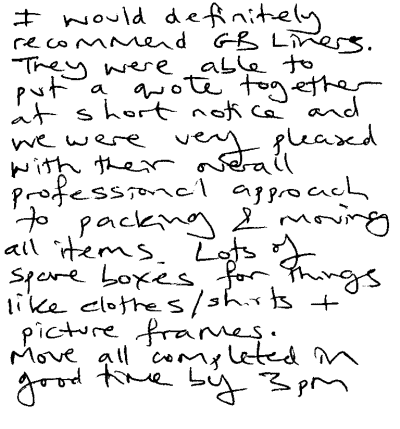 I would definitely
recommend GB Liners.
They were able to
put a quote together
at short notice and
we were very pleased
with their overall
professional approach
to packing & moving
all items. Lots of
spare boxes for things
like clothes/shirts +
picture frames.
Move all completed in
good time by 3pm